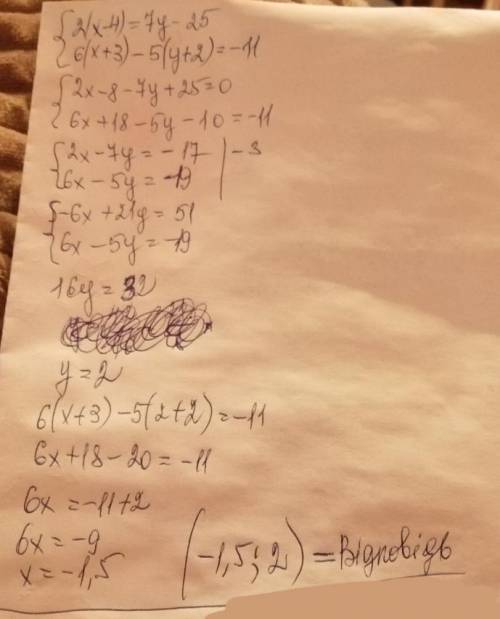 {2(x-4)=7y-25
{6(x+3)-5(y+2)=-11
{2x-8-7y+25=0
{6x+18-5y-10=-11
{2x-7y=-17 |-3
{6x-5y=-19
{-6x+21y=51
{6x-5y=-19
16y=32
y=2
6(x+3)-5(2+2)=-11
6x+18-20=-11
6x=-11+2
6x=-9
x=-1,5
(-1,5;2)=Відповідь